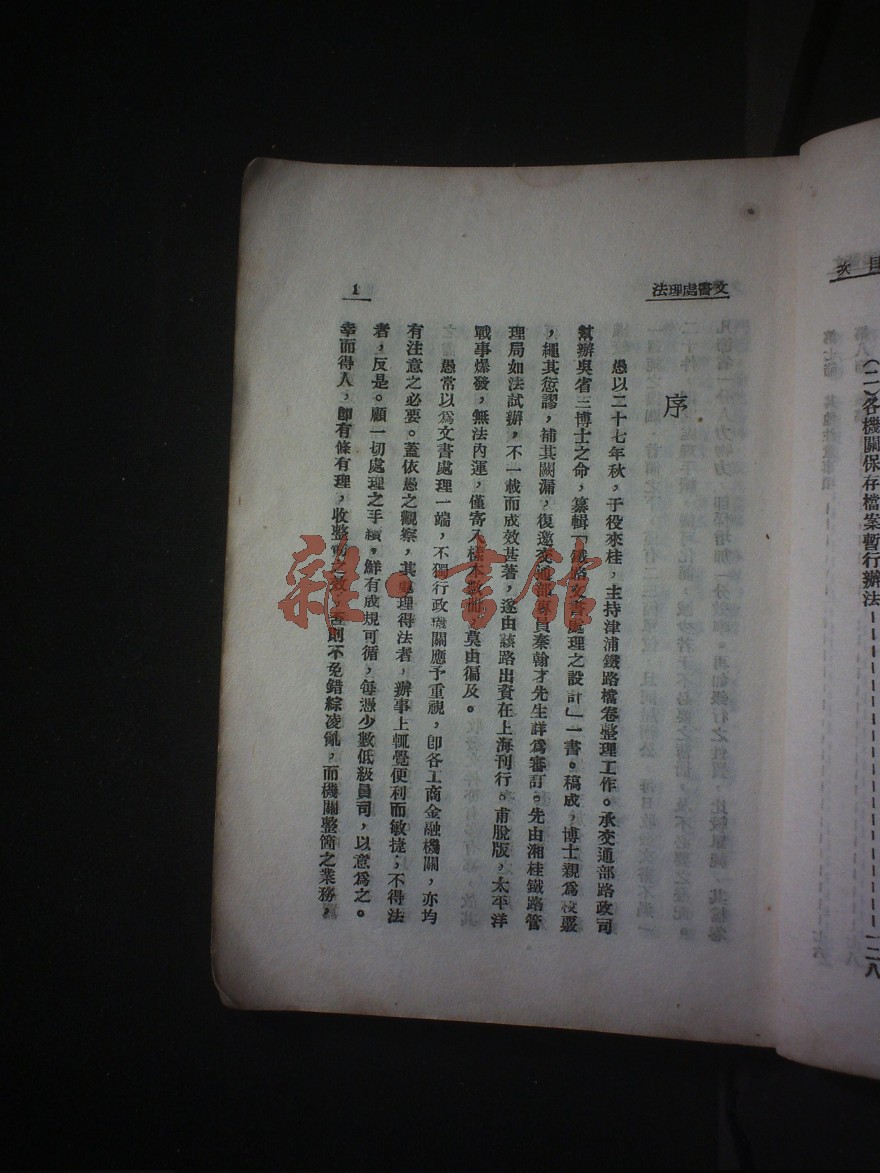 目次
(二)各機關保存檔案暫行辦法 一二八
文書處理法
序
愚以二十七年秋,于役來桂,主持津浦鐵路檔卷整理工作。承交通部路政司
幫辦吳省三博士之命,纂輯「鐵路文書處理之設計」一書。稿成,博士親爲校覈
,繩其愆謬,補其闕漏,復邀交通部專員秦翰才先生詳爲審訂。先由湘桂鐵路管
理局如法試辦,不一載而成效甚著,遂由該路出資在上海刊行。甫脫版,太平洋
戰事爆發,無法內運,僅寄入樣本數冊,莫由徧及。
愚常以爲文書處理一端,不獨行政機關應予重視,卽各工商金融機關,亦均
有注意之必要。蓋依愚之觀察,其處理得法者,辦事上輒覺便利而敏捷;不得法
者,反是。顧一切處理之手續,鮮有成規可循,每憑少數低級員司,以意爲之。
幸而得人,卽有條有理,收整飭之效,否則不免錯綜凌亂,而機關整箇之業務,
1
雜·書館